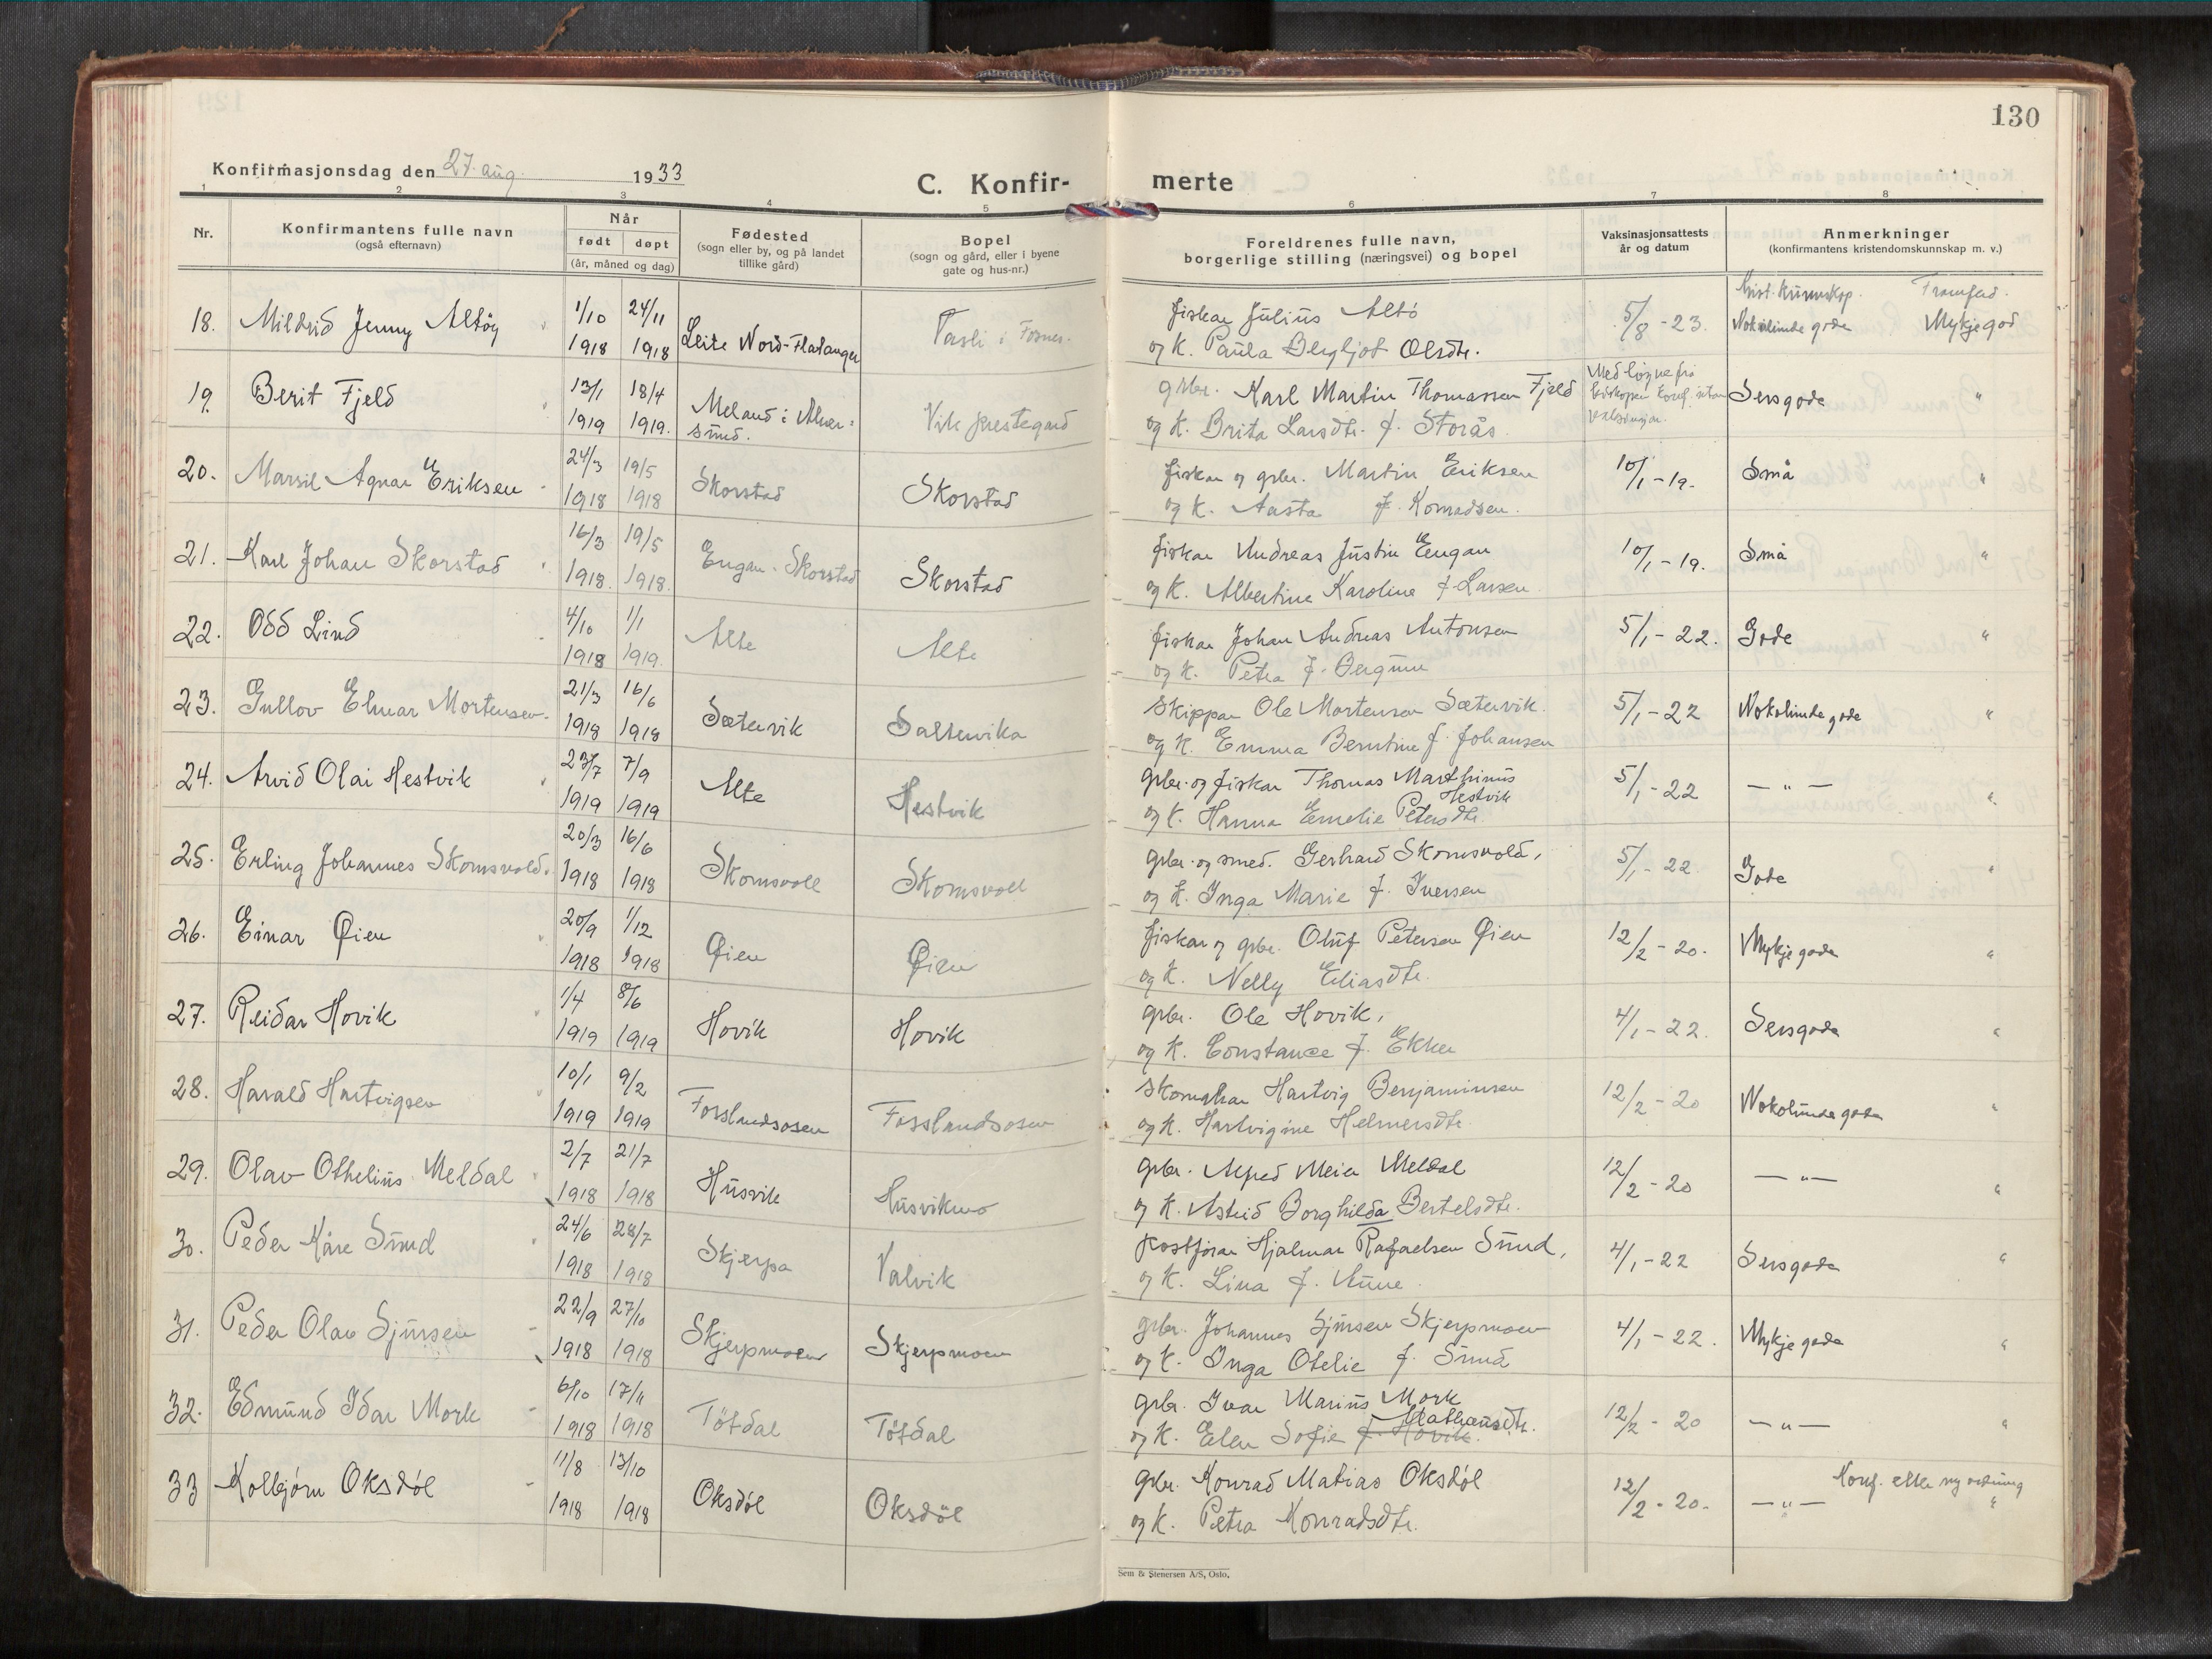 130
Konfirmasjonsdag den 27. aug. 1933
C. Konfir- merte
1 2 3 4 5 6 7 8
Nr.
Konfirmantens fulle navn
(også efternavn)
Når
født døpt
(år, måned og dag)
Fødested
(sogn eller by, og på landet
tillike gård)
Bopel
(sogn og gård, eller i byene
gate og hus-nr.)
Foreldrenes fulle navn,
borgerlige stilling (næringsvei) og bopel
Vaksinasjonsattests
år og datum
Anmerkninger
(konfirmantens kristendomskunnskap m. v.)
Krist. kunnskap. Framferd.
18. Mildrid Jenny Altöy 1/10 24/11 Leite Nord-Flatanger i Fosnes. fiskar Julius Altö 5/8 - 23. Nokolunde gode Mykje god
1918 1918 og k. Paula Bergljot Olsdtr.
19. Berit Fjeld 13/1 18/4 Meland i Alver- Vik prestegard gbr. Karl Martin Thomassen Fjeld Med løyve frå Sers gode "
1919 1919. sund. og k. Brita Larsdtr. f. Storås bidskopen konf. utan
20. Marsil Agnar Eriksen 24/3 19/5 Skorstad Skorstad fiskar og gbr. Martin Eriksen 10/1 - 19. Små "
1918 1918 og k. Aasta f. Konradsen.
21. Karl Johan Skorstad 16/3 19/5 Engan - Skorstad Skorstad fiskar Andreas Justin Engan 10/1 - 19. Små "
1918. 1918. og k. Albertine Karoline f. Larsen
22. Odd Lind 4/10 1/1 Alte Alte fiskar Johan Andreas Antonsen 5/1 - 22. Gode "
1918 1919. og k. Petra f.
23. Gullov Elmar Mortensen 21/3 16/6 Sætervik Saltervika Skippar Ole Mortensen Sætervik. 5/1 - 22 Nokolunde gode "
1918 1918 og k. Emma Berntine f. Johansen
24. Arvid Olai Hestvik 27/7 7/9 Alte Hestvik gbr. og fiskar Thomas Marthinus 5/1 - 22 — " — "
Hestvik
1919 1919 og k. Hanna Emelie Petersdtr.
25. Erling Johannes Skomsvold. 20/3 16/6 Skomsvoll Skomsvoll gbr. og smed. Gerhard Skomsvold, 5/1 - 22. Gode "
1918 1918 og k. Inga Marie f. Iversen
26. Einar Øien 20/9 1/12 Øien Øien fiskar og gbr. Oluf Petersen Øien 12/2 - 20. Mykje gode "
1918 1918 og k. Nelly Eliasdtr.
27. Reidar Hovik 1/4 8/6 Hovik Hovik gbr. Ole Hovik, 4/1 - 22. Sers gode "
1919 1919 og k. Constance f. Ekker
28. Harald Hartvigsen 10/1 9/2 Forslandsosen Fosslandsosen Skomakar Hartvig Benjaminsen 12/2 - 20 Nokolunde gode "
1919 1919 og k. Hartvigine Helmersdtr.
29. Olav Othelius Meldal 2/7 21/7 Husvik Husvikmo gbr. Alfred Meier Meldal 12/2 - 20 — " — "
1918 1918 og k. Astrid Borghilda Bertelsdtr.
30. Peder Kåre Smud 24/6 28/7 Skjerpa Valvik postförar Hjalmar Rafaelsen Smud, 4/1 - 22 Sers gode "
1918 1918 og k. Lina f. Aune.
31. Peder Olav Sjursen 22/9 27/10 Skjerpmoen Skjerpmoen gbr. Johannes Sjursen Skjerpmoen 4/1 - 22. Mykje gode "
1918 1918 og k. Inga Otelie f. Smud
32. Edmund Idar Mork 6/10 17/11 Tötdal Tötdal gbr. Ivar Marius Mork 12/2 - 20 — " — "
Matheusdtr.
1918 1918 og k. Elen Sofie f. Hovik.
33 Kolbjørn Oksdøl 11/8 13/10 Oksdøl Oksdöl gbr. Konrad Matias Oksdøl 12/2 - 20. — " — Konf. etter ny ordning
1918 1918 og k. Petra Konradsdtr. "
Sem & Stenersen A/S, Oslo.